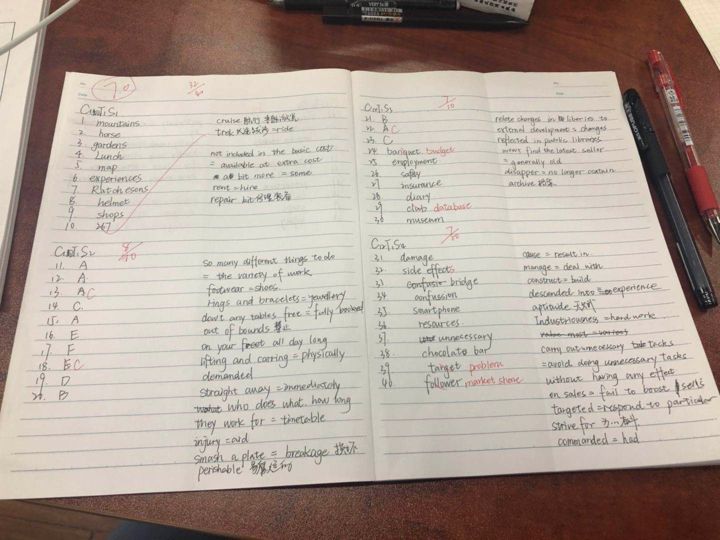 32/40
C12T1S1
1. mountains
2. horse
3. gardens
4. Lunch
5. map
6. experiences
7. Ratchesons
8. helmet
9. shops
10. 267
cruise
trek = ride
not included in the basic cost
= available at extra cost
a bit more = some
rent = hire
repair bit
C12T1S2
8/10
11. A
12. A
13. A C
14. C.
15. A
16. E
17. F
18. E C
19. D
20. B
So many different things to do
= the variety of work
footwear = shoes.
rings and bracelets = jewellery
don't any tables free = fully booked
out of bounds 禁止
on your feet all day long
lifting and carring = physically
demanded
straight away = immediately
who does what. how long
they work for = timetable
injury =
smash a plate = breakage
perishable
C12T1S3
7/10
21. B
22. A C
23. C
24 banquet budget
25 employment
26 safty
27 insurance
28 diary
29 club database
30 museum
relete changes in libraries to
external development = changes
reflected in public libraries
find the latest seller
= generally old
disapper = no longer contain
archive
C12T1S4
7/10
31. damage
32. side effects
33 bridge
34 confussion
35 smartphone
36 resources
37 unnecessary
38 chocolate bar
39 target problem
40 follower market share
cause = result in
manage = deal with
construct = build
descended into = experience
aptitude
Industriousness = hard work
carry out unnecessary Tacks
= avoid doing unnecessary Tasks
without having any effect
on sales = fail to boost sells
targeted = respond to particular
strive for
commanded = had